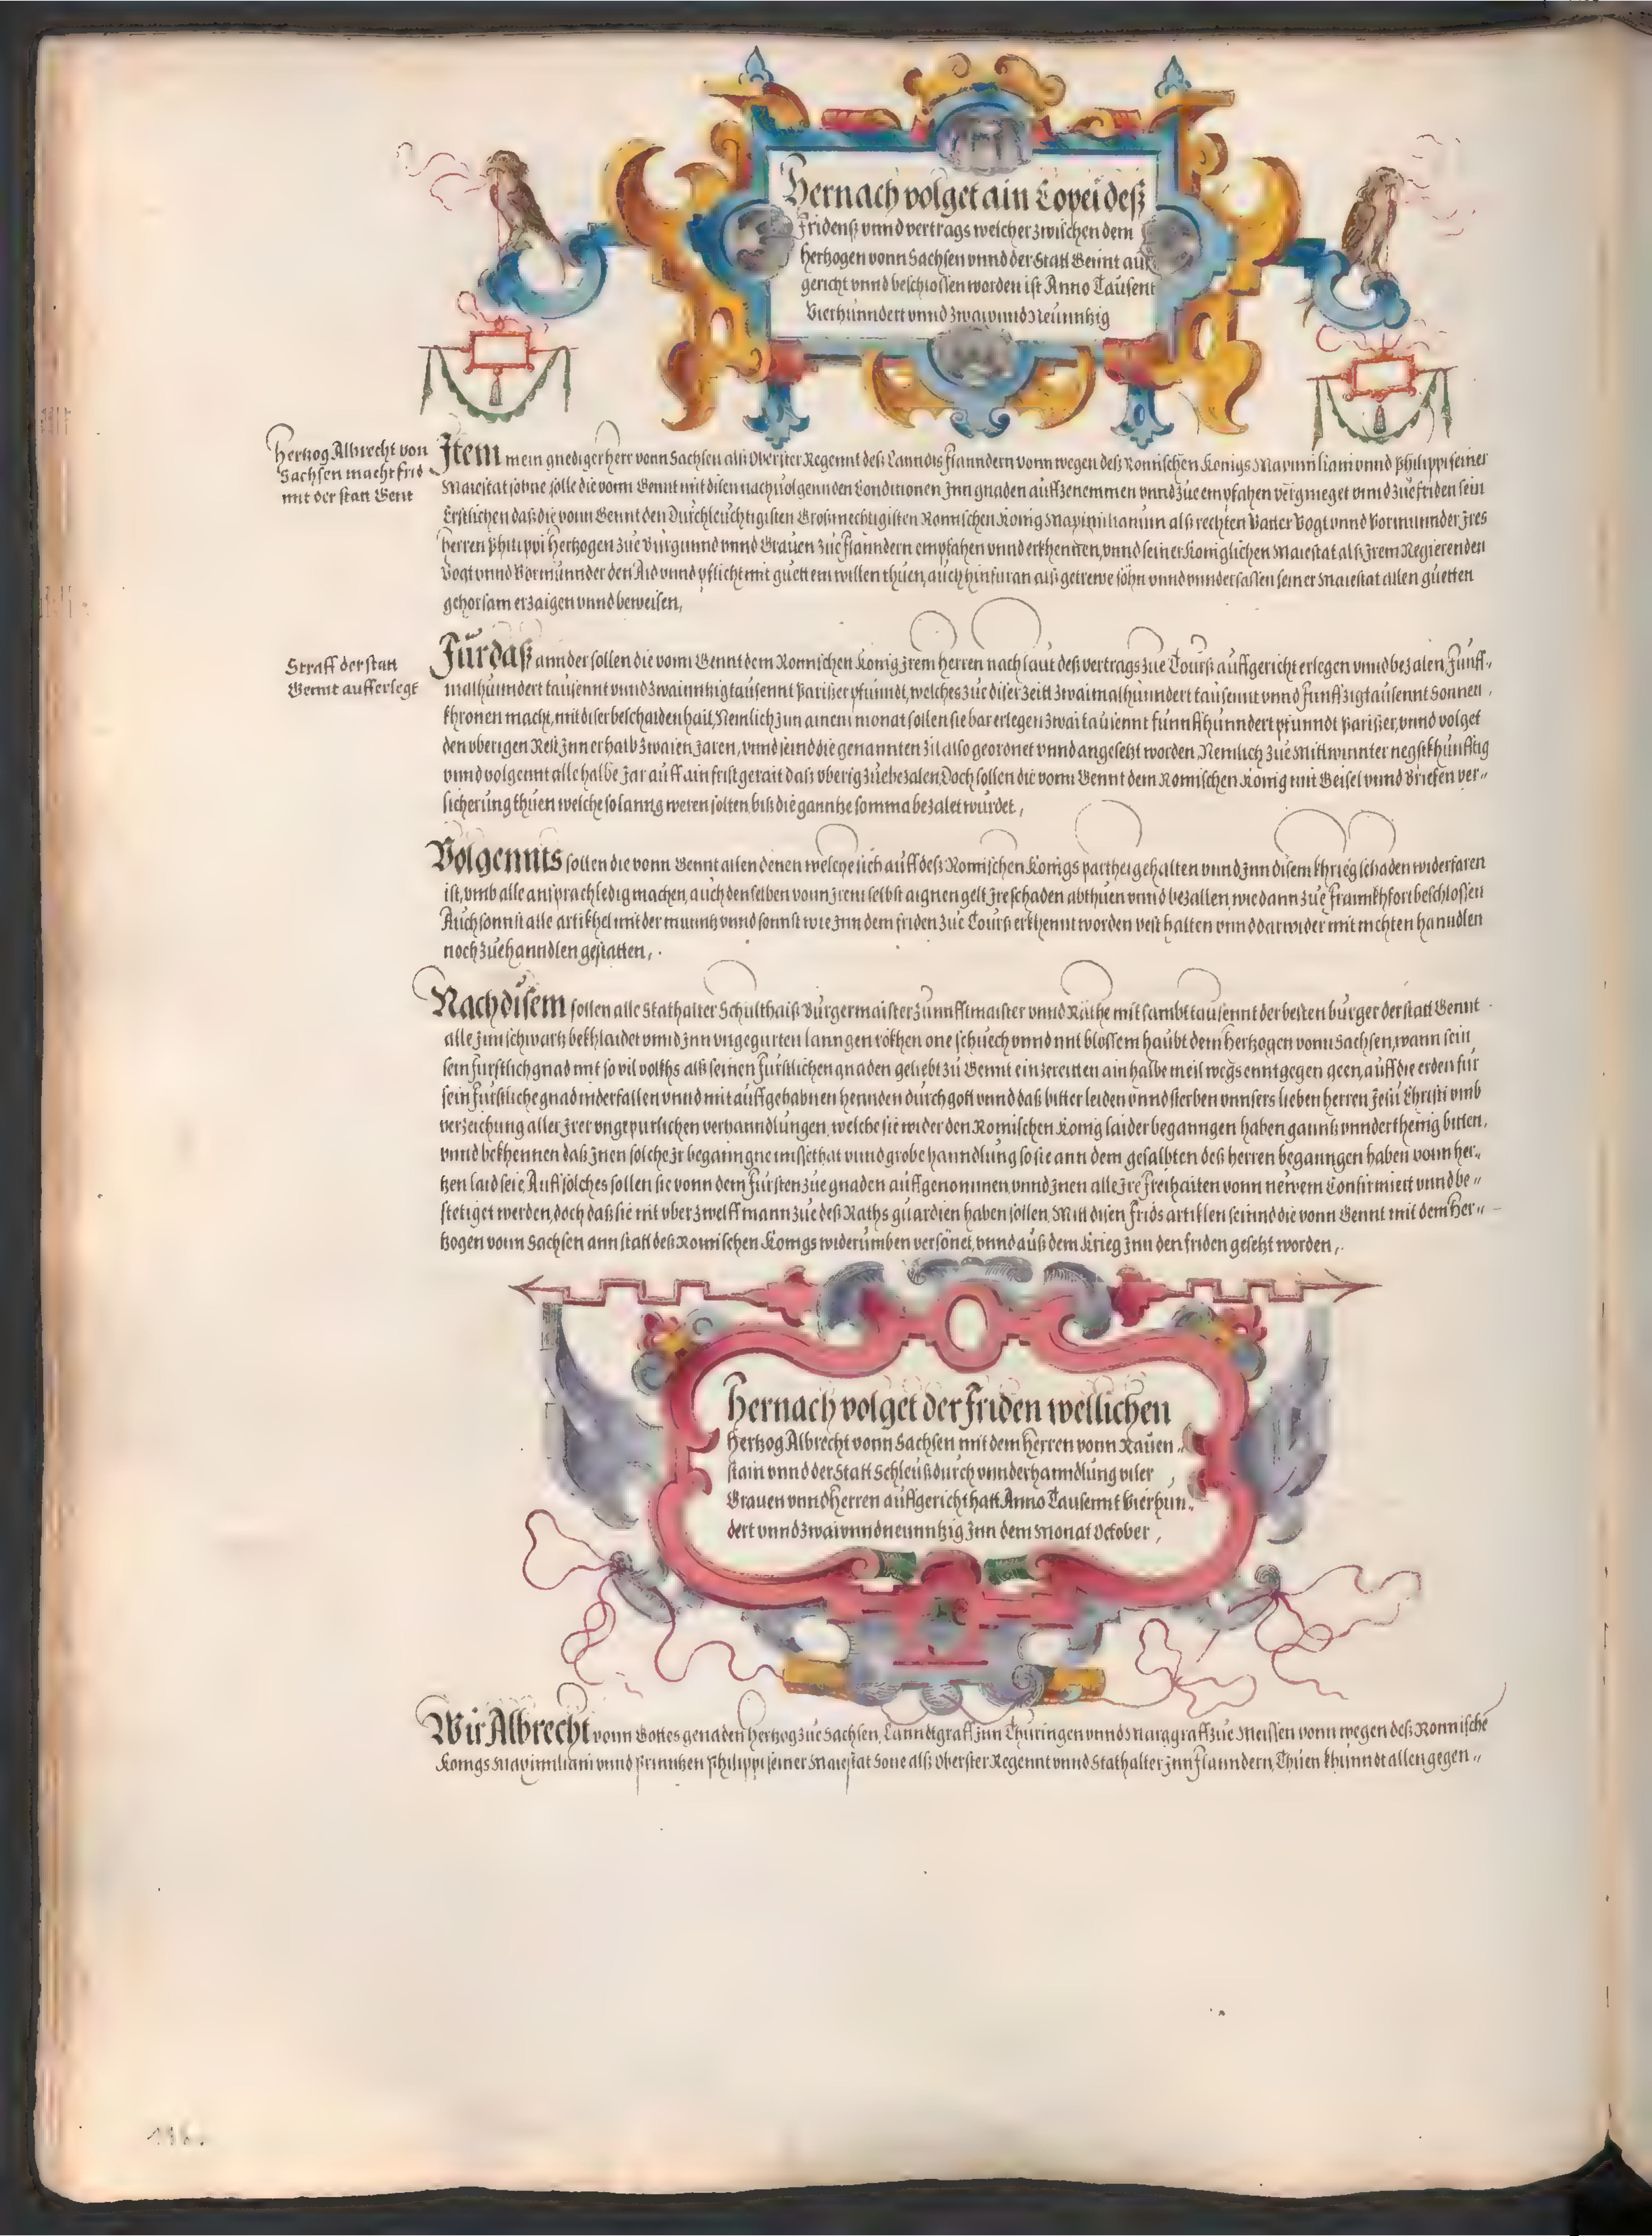 Hernach volget ain Copei deß
Fridenß vnnd vertrags welcher zwischen dem
Hertzogen vonn Sachsen vnnd der Statt Gennt auff
gericht vnnd beschlossen worden ist Anno Tausent
Vierhunndert vnnd zwaivnndneünntzig
Hertzog Albrecht von
Sachsen macht frid
mit der statt Gent
Item mein gnediger Herr vonn Sachsen alß Oberster Regennt deß Lanndts Flanndern vonn wegen deß Romischen Konigs Maximiliani vnnd Philippi seiner
Maiestat sohne solle die vonn Gennt mit disen nachuolgennden Conditionen Inn gnaden auffzenemmen vnnd zue empfahen vergnieget vnnd zue friden sein
Erstlichen daß die vonn Gennt den Durchleuchtigisten Großmechtigisten Romischen Konig Maximilianum alß rechten Vatter Vogt vnnd Vormunnder Jres
Herren Philippi Hertzogen zue Burgunnd vnnd Grauen zue Flanndern empfahen vnnd erkhennen, vnnd seiner Koniglichen Maiestat alß Jrem Regierenden
Vogt vnnd Vormunnder den Aid vnnd pflicht mit guettem willen thuen, auch hinfuran alß getrewe sohn vnnd vnndersassen seiner Maiestat allen guetten
gehorsam erzaigen vnnd beweisen,
Straff der statt
Gennt aufferlegt
Fürdaß annder sollen die vonn Gennt dem Romischen Konig Jrem Herren nach laut deß vertrags zue Tourß auffgericht erlegen vnnd bezalen, Funff-
malhunndert tausennt vnnd zwainntzigtausennt Parißer pfunndt, welches zue diser Zeitt zwaimalhunndert tausennt vnnd funffzigtausennt Sonnen
khronen macht, mit diser beschaidenhait, Nemlich Jnn ainem monat sollen sie bar erlegen zwaitausennt funnffhunndert pfunndt Parißer, vnnd volget
den vberigen Rest Jnnerhalb zwaien Jaren, vnnd seind die genannten Zil also geordnet vnnd angesetzt worden, Nemlich zue Mittwinnter negstkhunfftig
vnnd volgennt alle halbe Jar auff ain frist gerait daß vberig zue bezalen, Doch sollen die vonn Gennt dem Romischen Konig mit Geisel vnnd Briefen ver-
sicherung thuen welche so lanng weren solten biß die ganntze somma bezalet wurdet,
Volgennts sollen die vonn Gennt allen denen welche sich auff deß Romischen Konigs parthei gehalten vnnd Jnn disem khrieg schaden widerfaren
ist, vmb alle ansprach ledig machen, auch denselben vonn Jrem selbst aignen gelt Jre schaden abthuen vnnd bezallen, wie dann zue Frannkhfort beschlossen
Auch sonnst alle artikhel mit der munntz vnnd sonnst wie Jnn dem friden zue Tourß erkhennt worden vest halten vnnd darwider mit nichten hanndlen
noch zue hanndlen gestatten,
Nach disem sollen alle Stathalter Schulthaiß Burgermaister Zunnfftmaister vnnd Räthe mit sambt tausennt der besten burger der statt Gennt
alle Jnn schwartz bekhlaidet vnnd Jnn vngegurten lanngen rökhen one schuech vnnd mit blossem haubt dem Hertzogen vonn Sachsen, wann sein
sein furstlich gnad mit so vil volkhs alß seinen furstlichen gnaden geliebt zu Gennt einzereitten ain halbe meil wegs enntgegen geen, auff die erden fur
sein furstliche gnad niderfallen vnnd mit auffgehabnen hennden durch gott vnnd daß bitter leiden vnnd sterben vnnsers lieben herren Jesu Christi vmb
verzeichung aller Jrer vngepurlichen verhanndlungen, welche sie wider den Romischen Konig laider beganngen haben gannß vnnderthenig bitten,
vnnd bekhennen daß Jnen solche Jr beganngne missethat vnnd grobe hanndlung so sie ann dem gesalbten deß herren beganngen haben vonn her-
tzen laid seie, Auff sölches sollen sie vonn dem Fursten zue gnaden auffgenommen vnnd Jnen alle Jre Freihaiten vonn newem Confirmiert vnnd be-
stetiget werden, doch daß sie nit vber zwelff mann zue deß Raths guardien haben sollen, Mitt disen frids artiklen seinnd die vonn Gennt mit dem Her-
tzogen vonn Sachsen ann statt deß Romischen Konigs widerumben versönet, vnnd auß dem Krieg Jnn den friden gesetzt worden,
Hernach volget der Friden wellichen
Hertzog Albrecht vonn Sachsen mit dem Herren vonn Rauen-
stain vnnd der Statt Schleuß durch vnnderhanndlung viler
Grauen vnnd Herren auffgericht hatt Anno Tausennt Vierhun-
dert vnnd zwaivnndneunntzig Jnn dem Monat October,
Wir Albrecht vonn Gottes genaden Hertzog zue Sachsen, Lanndtgraff Jnn Thuringen vnnd Marggraff zue Meissen vonn wegen deß Romische
Konigs Maximiliani vnnd Prinntzen Philippi seiner Maiestat Sone alß Oberster Regennt vnnd Stathalter Jnn Flanndern, Thuen khunndt allen gegen-